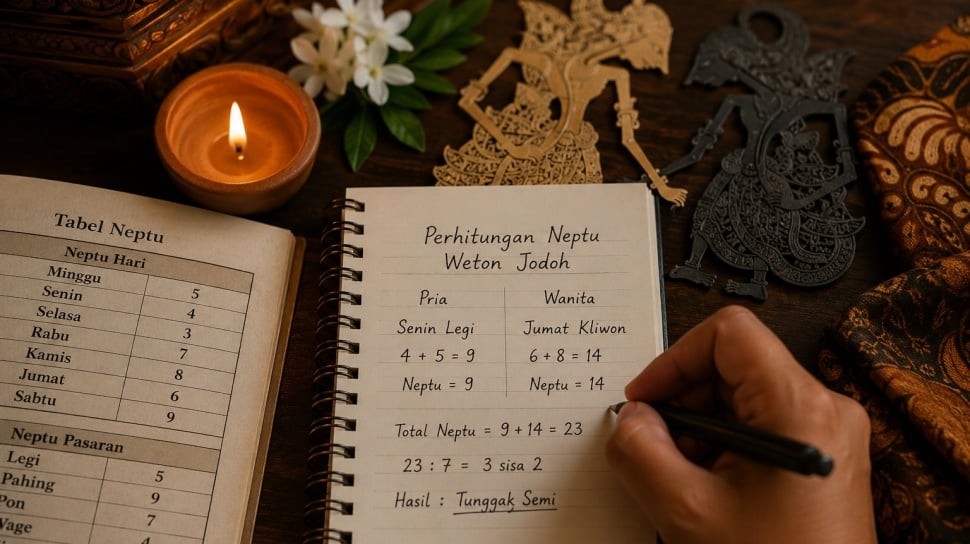 Tabel Neptu
Neptu Hari
Minggu 5
Senin 4
Selasa 3
Rabu 7
Kamis 8
Jumat 6
Sabtu 9
Neptu Pasaran
Legi 5
Pahing 9
Pon 7
Wage 4
Perhitungan Neptu
Weton Jodoh
Pria Wanita
Senin Legi Jumat Kliwon
4 + 5 = 9 6 + 8 = 14
Neptu = 9 Neptu = 14
Total Neptu = 9 + 14 = 23
23 : 7 = 3 sisa 2
Hasil : Tunggak Semi